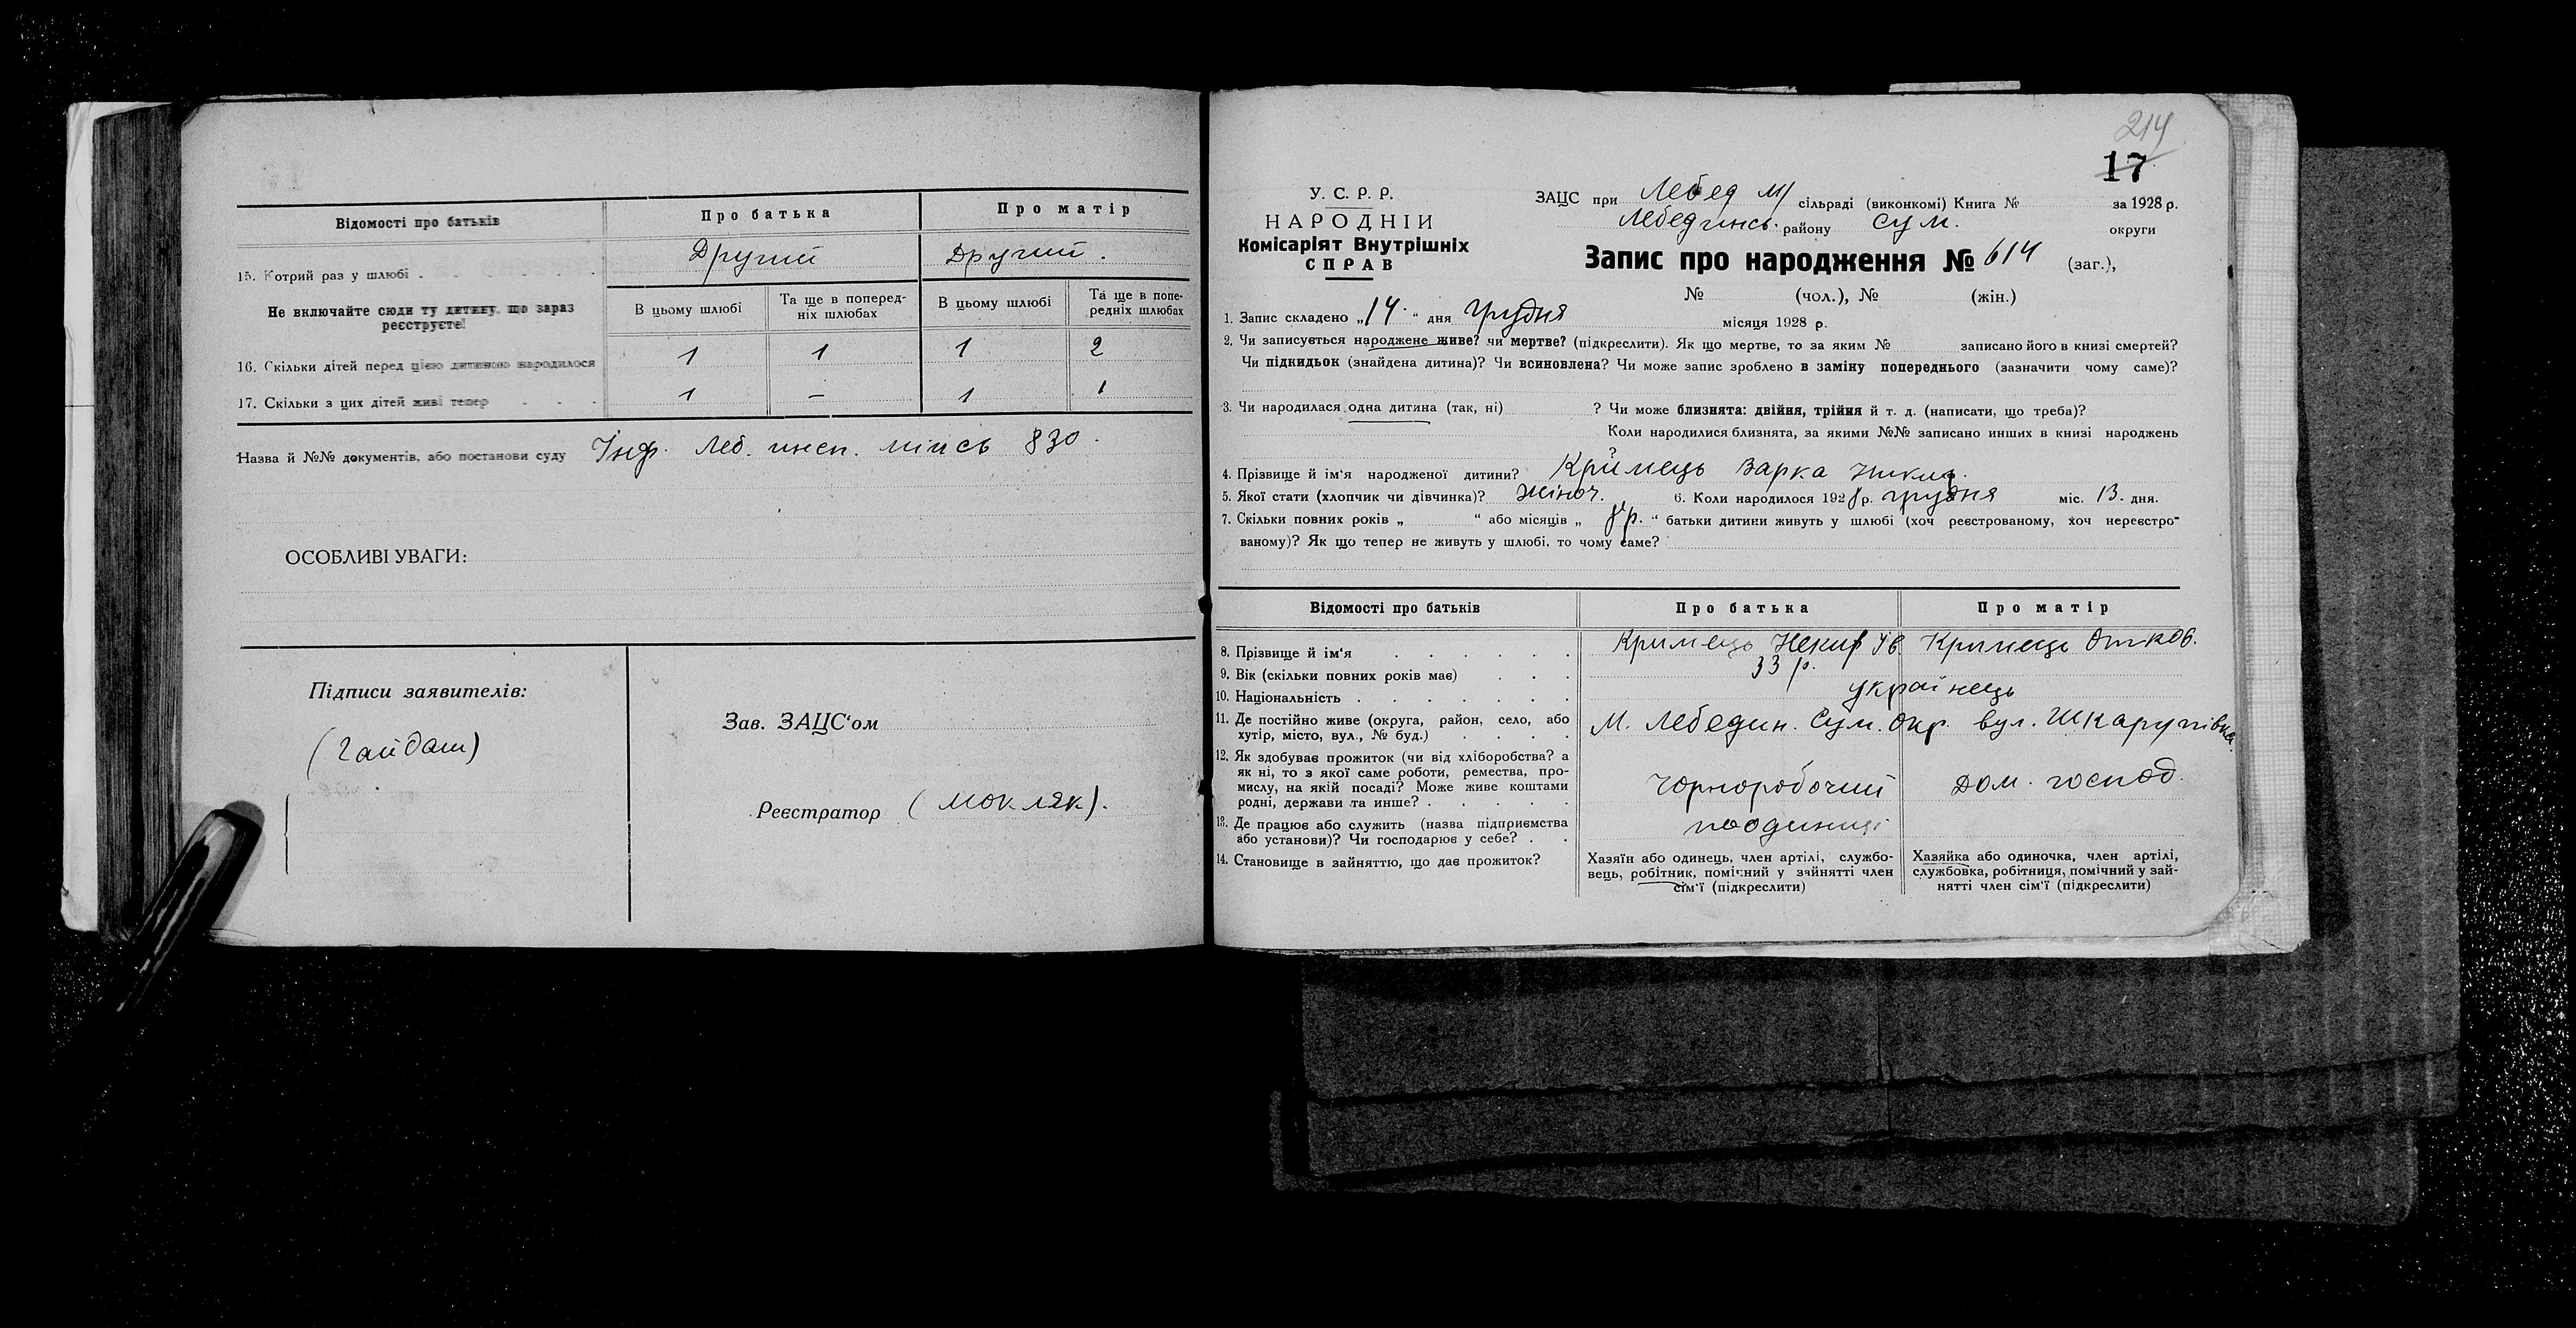 Відомості про батьків
Про батька
Про матір
15. Котрий раз у шлюбі
Другий
Другий.
Не включайте сюди ту дитину, що зараз
реєструєте!
В цьому шлюбі
Та ще в поперед-
ніх шлюбах
В цьому шлюбі
Та ще в попе-
редніх шлюбах
16. Скільки дітей перед цією дитиною народилося
1 1 1 2
17. Скільки з цих дітей живі тепер
1 – 1 1
Назва й №№ документів, або постанови суду Інф. Леб. инсп. 830.
ОСОБЛИВІ УВАГИ:
Підписи заявителів:
(Гайдаш)
Зав. ЗАЦС‘ом
Реєстратор (Мокляк).
214
17
У. С. Р. Р.
НАРОДНІЙ
Комісаріят Внутрішніх
СПРАВ
ЗАЦС при Лебед М/ сільраді (виконкомі) Книга № за 1928 р.
Лебединсь. району Сум. округи
Запис про народження № 614 (заг.),
№ (чол.), № (жін.)
1. Запис складено „14.“ дня Грудня місяця 1928 р.
2. Чи записується народжене живе? чи мертве? (підкреслити). Як що мертве, то за яким № записано його в книзі смертей?
Чи підкидьок (знайдена дитина)? Чи всиновлена? Чи може запис зроблено в заміну попереднього (зазначити чому саме)?
3. Чи народилася одна дитина (так, ні) ? Чи може близнята: двійня, трійня й т. д. (написати, що треба)?
Коли народилися близнята, за якими №№ записано инших в книзі народжень
?
4. Прізвище й ім‘я народженої дитини? Кримець Варка
5. Якої стати (хлопчик чи дівчинка)? Жіноч. 6. Коли народилося 1928 р. грудня міс. 13. дня.
7. Скільки повних років „ “ або місяців „ “ батьки дитини живуть у шлюбі (хоч реєстрованому, хоч нереєстро-
ваному)? Як що тепер не живуть у шлюбі, то чому саме?
Відомості про батьків
Про батька
Про матір
8. Прізвище й ім‘я
Кримець Некиф Ів
Кримець
9. Вік (скільки повних років має)
33 р.
10. Національність
українець
11. Де постійно живе (округа, район, село, або
хутір, місто, вул., № буд.)
М. Лебедин. Сум. Окр. вул. Шкарупівка
12. Як здобуває прожиток (чи від хліборобства? а
як ні, то з якої саме роботи, ремества, про-
мислу, на якій посаді? Може живе коштами
родні, держави та инше?
Чорноробочий
Дом. господ.
13. Де працює або служить (назва підприємства
або установи)? Чи господарює у себе?
поодиниці
14. Становище в зайняттю, що дає прожиток?
Хазяїн або одинець, член артілі, службо-
вець, робітник, помічний у зайнятті член
сім‘ї (підкреслити)
Хазяйка або одиночка, член артілі,
службовка, робітниця, помічний у зай-
нятті член сім‘ї (підкреслити)